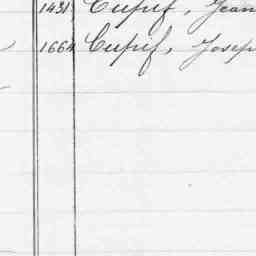 1431 Cupif, Jean
1664 Cupif, Josep